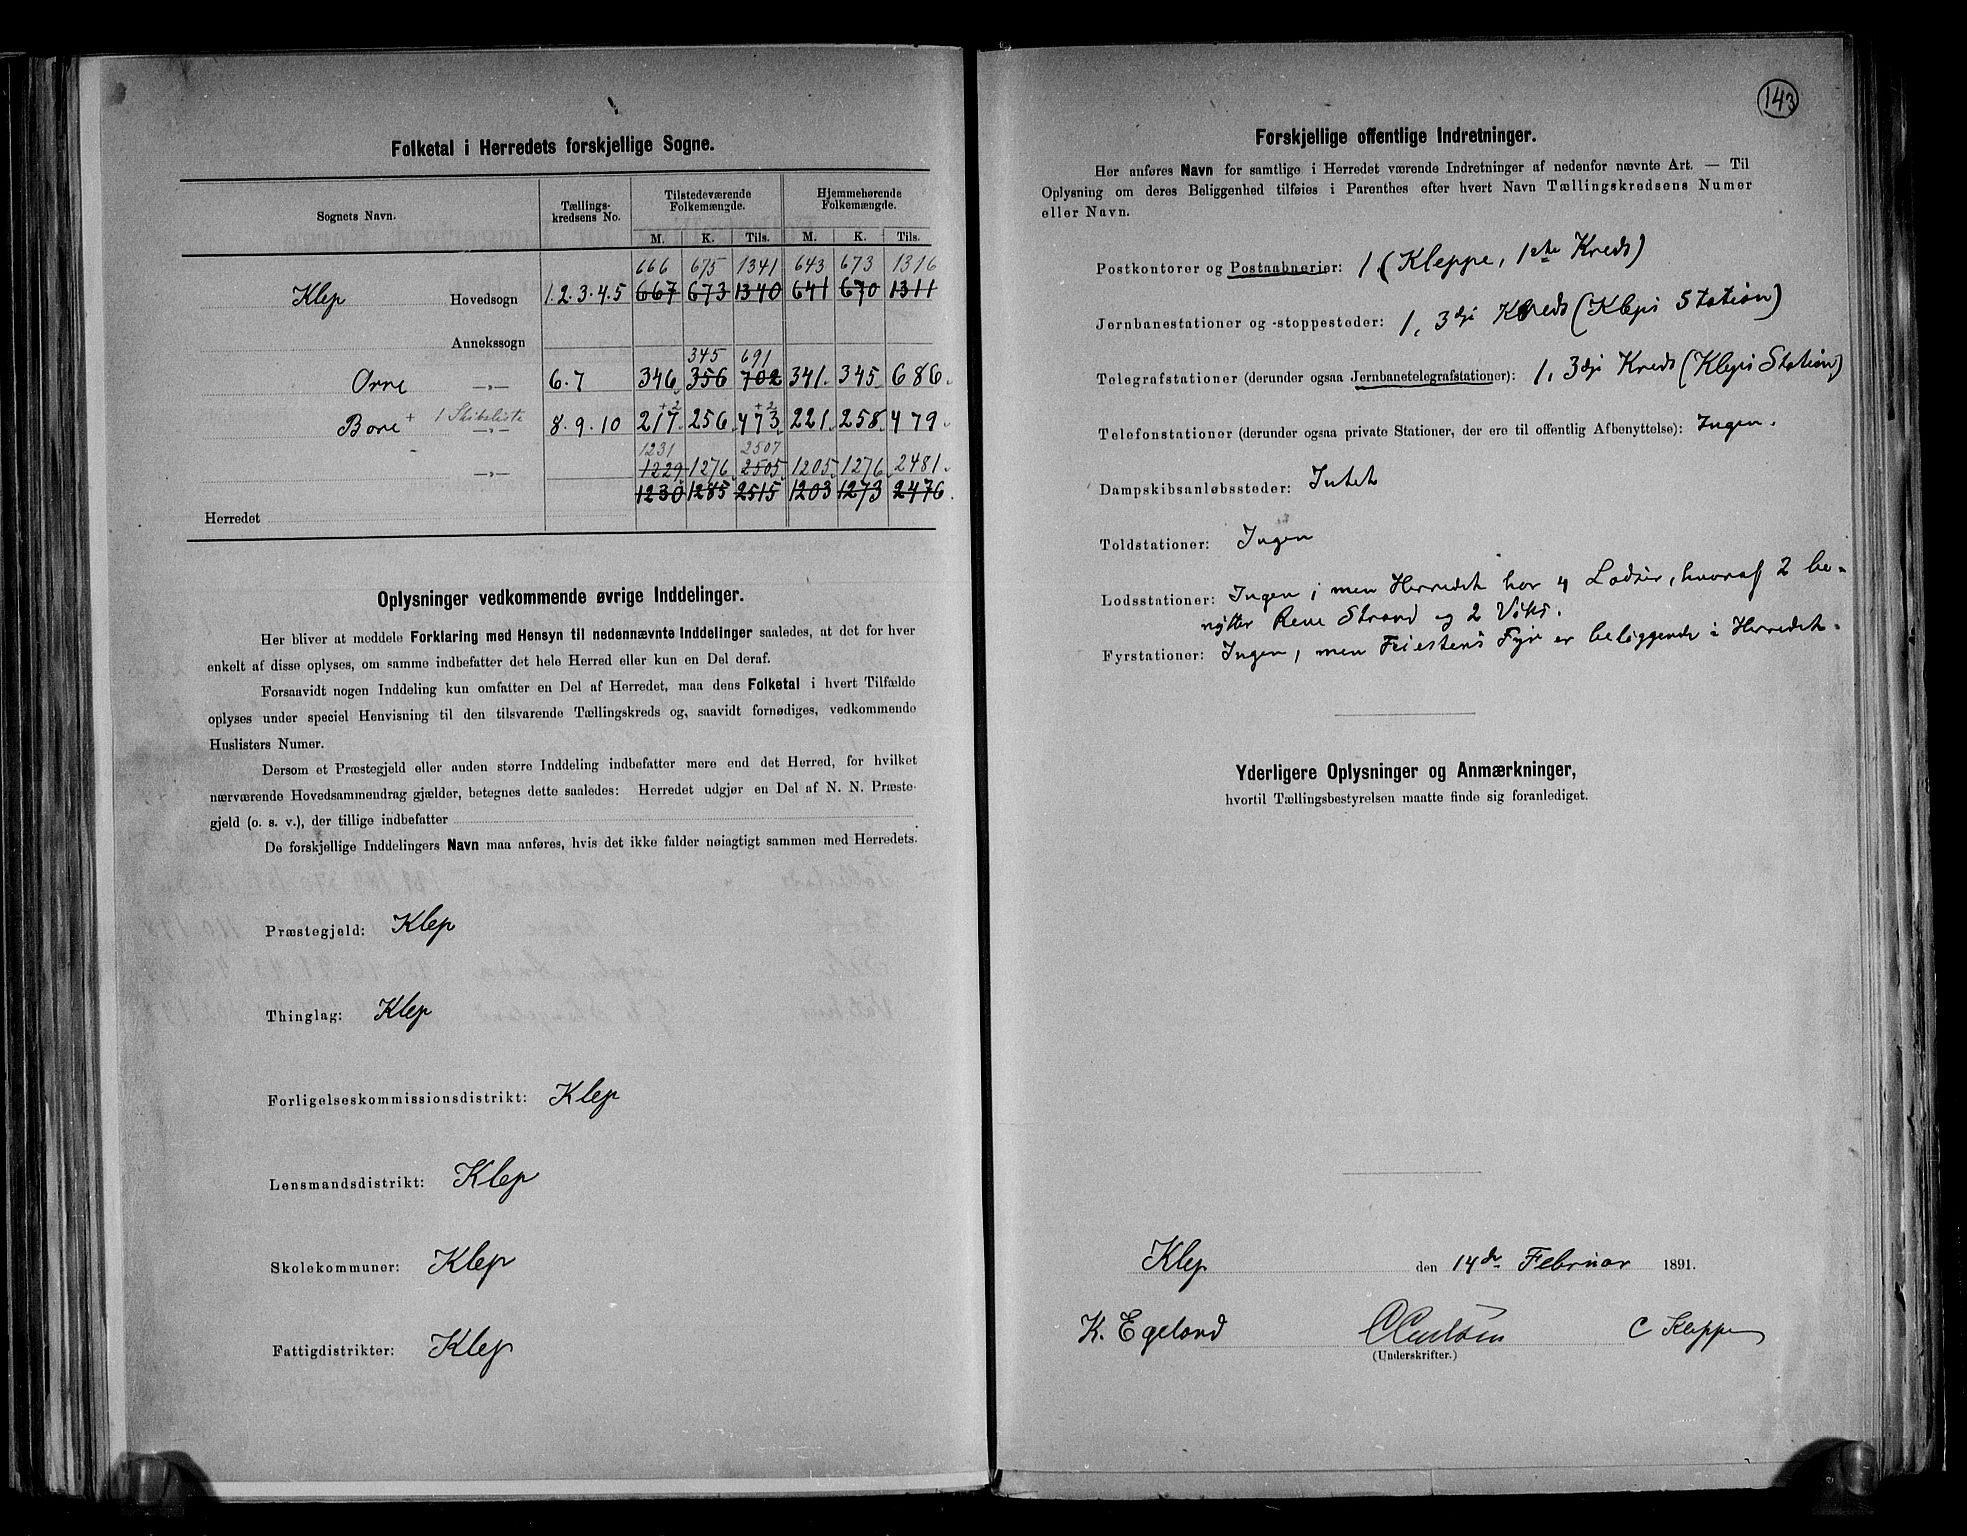 Folketal i Herredets forskjellige Sogne.
Sognets Navn.
Tællings-
kredsens No.
Tilstedeværende
Folkemængde.
Hjemmehørende
Folkemængde.
M. K. Tils. M. K. Tils.
666 675 1341 643 673 1316
Klep Hovedsogn 1.2.3.4.5 667 673 1340 641 670 1311
Annekssogn
345 691
Orre —„— 6.7 346 356 702 341. 345. 686.
+2 +2
Bore + 1 Skibsliste —„— 8.9.10 217. 256. 473. 221. 258. 479.
1231 2507
—„— 1229 1276 2505 1205 1276 2481.
1230 1285 2515 1203 1273 2476.
Herredet
Oplysninger vedkommende øvrige Inddelinger.
Her bliver at meddele Forklaring med Hensyn til nedennævnte Inddelinger saaledes, at det for hver
enkelt af disse oplyses, om samme indbefatter det hele Herred eller kun en Del deraf.
Forsaavidt nogen Inddeling kun omfatter en Del af Herredet, maa dens Folketal i hvert Tilfælde
oplyses under speciel Henvisning til den tilsvarende Tællingskreds og, saavidt fornødiges, vedkommende
Huslisters Numer.
Dersom et Præstegjeld eller anden større Inddeling indbefatter mere end det Herred, for hvilket
nærværende Hovedsammendrag gjælder, betegnes dette saaledes: Herredet udgjør en Del af N. N. Præste-
gjeld (o. s. v.), der tillige indbefatter
De forskjellige Inddelingers Navn maa anføres, hvis det ikke falder nøiagtigt sammen med Herredets.
Præstegjeld: Klep
Thinglag: Klep
Forligelseskommissionsdistrikt: Klep
Lensmandsdistrikt: Klep
Skolekommuner: Klep
Fattigdistrikter: Klep
143
Forskjellige offentlige Indretninger.
Her anføres Navn for samtlige i Herredet værende Indretninger af nedenfor nævnte Art. — Til
Oplysning om deres Beliggenhed tilføies i Parenthes efter hvert Navn Tællingskredsens Numer
eller Navn.
Postkontorer og Postaabnerier: 1 (Kleppe, 1ste Kreds)
Jernbanestationer og -stoppesteder: 1, 3dje Kreds (Kleps Station)
Telegrafstationer (derunder ogsaa Jernbanetelegrafstationer): 1, 3dje Kreds (Kleps Station)
Telefonstationer (derunder ogsaa private Stationer, der ere til offentlig Afbenyttelse): Ingen.
Dampskibsanløbssteder: Intet
Toldstationer: Ingen
Lodsstationer: Ingen; men Herredet har 4 Lodser, hvoraf 2 be-
nytter Reve Strand og 2 Viks.
Fyrstationer: Ingen, men Feiestens Fyr er beliggende i Herredet.
Yderligere Oplysninger og Anmærkninger,
hvortil Tællingsbestyrelsen maatte finde sig foranlediget.
Klep den 14de Februar 1891.
K. Egeland C Carlsen C Kleppe
(Underskrifter.)